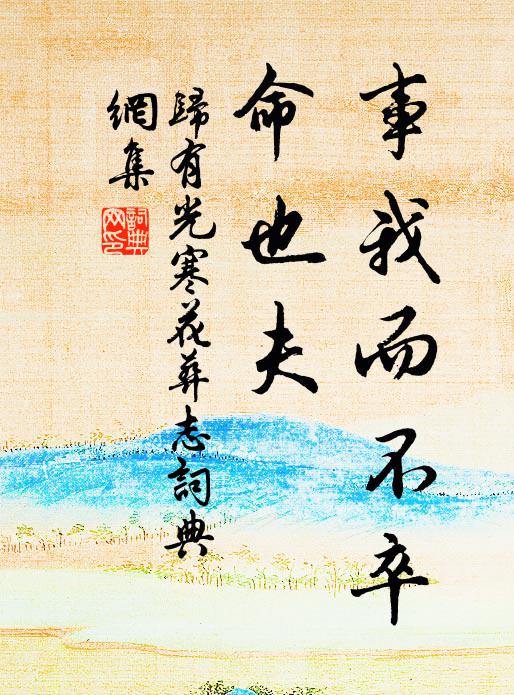 事我而不卒
命也夫
歸有光寒花葬志詞典
網集
詞典
网印